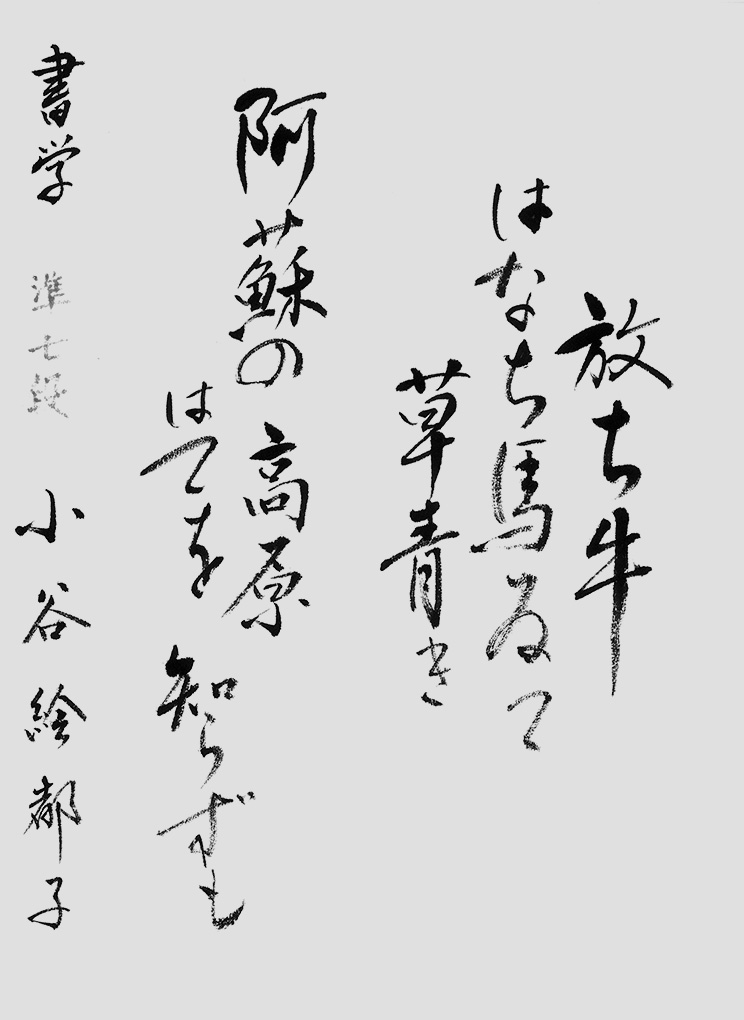 放ち牛
はなち馬ゐて
草青き
阿蘇の高原
はてを
知らずも
書学 準七段 小谷絵都子